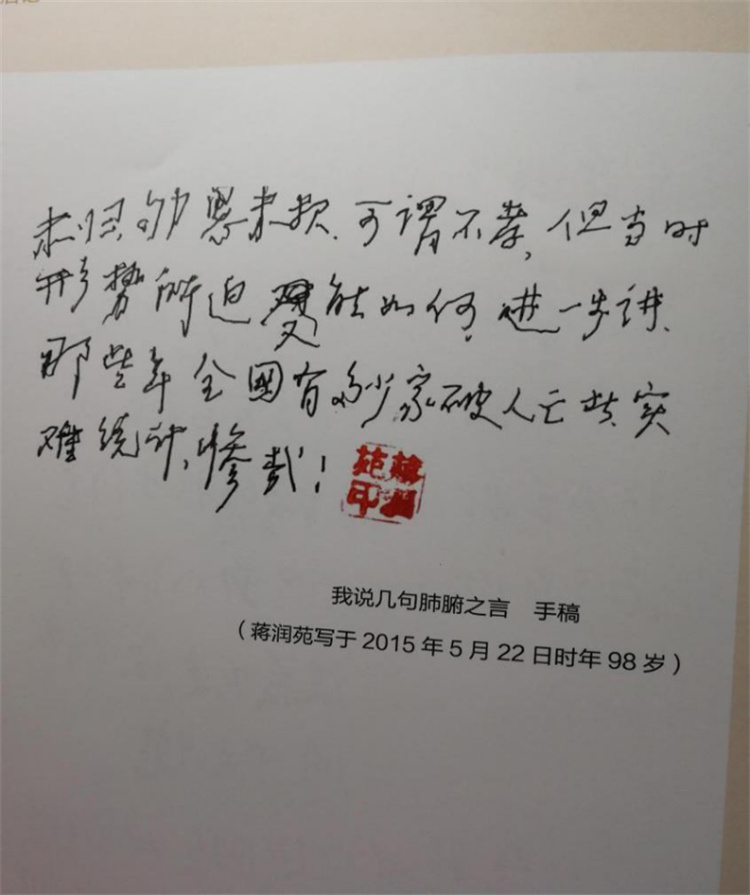 可谓不孝,但当时
形势所迫又能如何,进一步讲、
那些年全國有多少家破人亡者,实
难统计,惨哉!
蒋润苑印
我说几句肺腑之言 手稿
(蒋润苑写于2015年5月22日时年98岁)